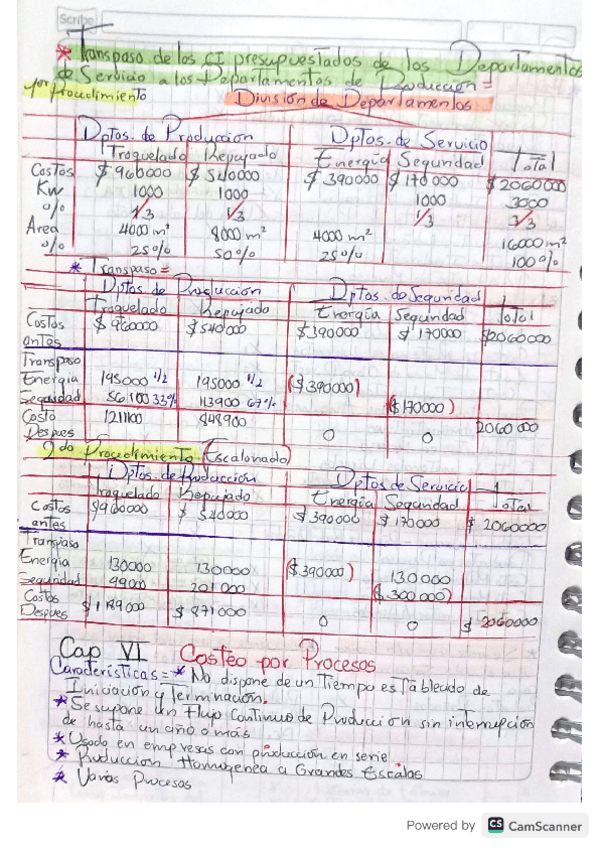 Scribe
* Transpaso de los CI presupuestados de los Departamentos
de Servicio a los Departamentos de Producción=
1er procedimiento División de Departamentos
Dptos. de Producción Dptos. de Servicio
Troquelado Repujado Energía Seguridad Total
Costos $ 960000 $ 540000 $ 390000 $ 170000 $ 2060000
Kw 1000 1000 1000 3000
% 1/3 1/3 1/3 3/3
Area 4000 m² 8000 m² 4000 m² 16000 m²
% 25% 50% 25% 100%
* Transpaso=
Dptos de Producción Dptos. de Seguridad
Troquelado Repujado Energía Seguridad Total
Costos $ 960000 $ 540000 $390000 $ 170000 $2060000
antes
Transpaso
Energia 195000 1/2 195000 1/2 ($390000)
Seguridad 56100 33% 113900 67% ($170000)
Costo 1211100 848900 0 0 2060000
Despues
2do Procedimiento (Escalonado)
Dptos. de Producción Dptos de Servicio
Troquelado Repujado Energía Seguridad Total
Costos $960000 $ 540000 $390000 $ 170000 $ 2060000
antes
Transpaso
Energia 130000 130000 ($390000) 130000
Seguridad 99000 201000 ($300000)
Costos $ 1189000 $ 871000 0 0 $ 2060000
Despues
Cap VI Costeo por Procesos
Características= * No dispone de un Tiempo establecido de
Iniciación y terminación.
* Se supone un Flujo Continuo de Producción sin interrupción
de hasta un año o más
* Usado en empresas con producción en serie.
* Producción Homogenea a Grandes Escalas
* Varios Procesos
Powered by CS CamScanner